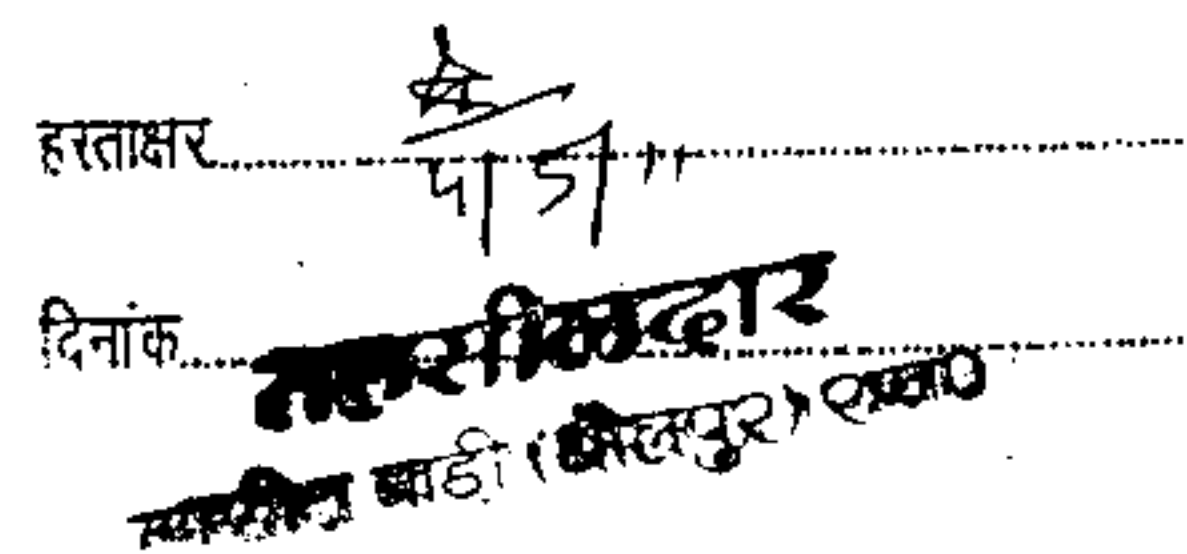 हस्ताक्षर
दिनांक
तहसीलदार
तहसील बाड़ी (धौलपुर) राज०